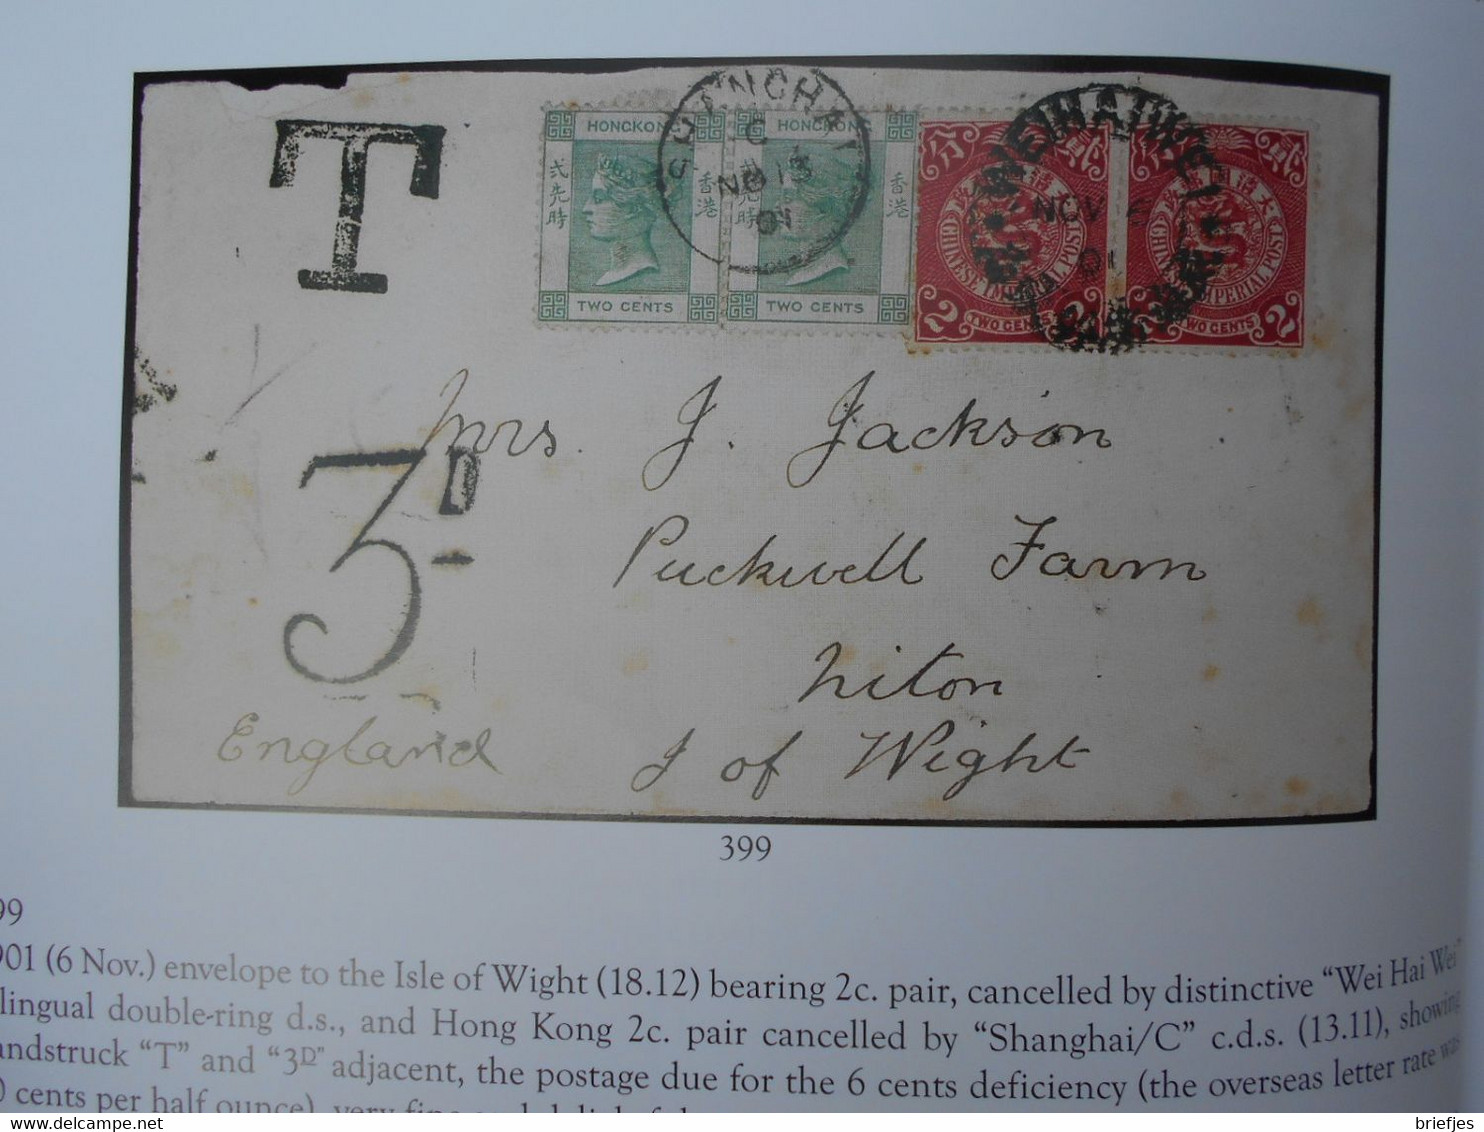 T
HONGKON
弍先時
香港
TWO CENTS
HONGKON
香港
TWO CENTS
SHANGHAI
C
NO 13
01
WEIHAIWEI
NOV 6
01
分
貳
CHINESE IMPERIAL POST
2 TWO CENTS
IMPERIAL POST
TWO CENTS 2
3D
Mrs. J. Jackson
Puckwell Farm
Niton
I of Wight
England
399
99
901 (6 Nov.) envelope to the Isle of Wight (18.12) bearing 2c. pair, cancelled by distinctive “Wei Hai Wei”
lingual double-ring d.s., and Hong Kong 2c. pair cancelled by “Shanghai/C” c.d.s. (13.11), showing
andstruck “T” and “3D” adjacent, the postage due for the 6 cents deficiency (the overseas letter rate was
0 cents per half ounce), very fine
briefjes